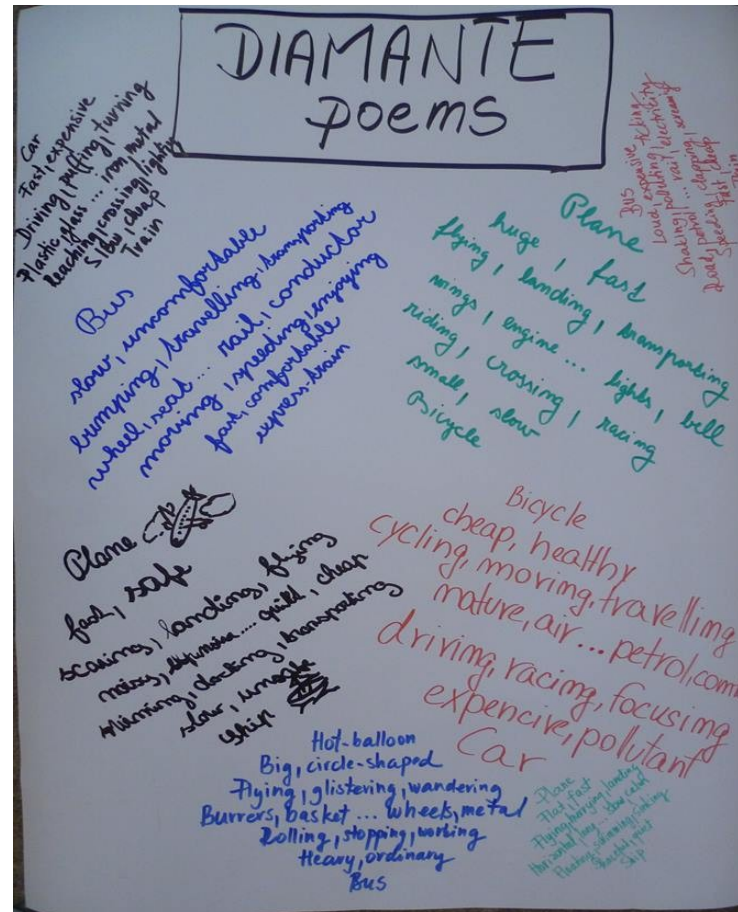 DIAMANTE
poems
Car
Fast, expensive
Driving, puffing, turning
Plastic, glass ... iron, metal
Reaching, crossing, lighting
Slow, cheap
Train
BUS
Loud, expensive
Shaking, polluting, ticking
Road, petrol ... rail, electricity
Speeding, clapping, screaming
Fast, cheap
Train
Bus
slow, uncomfortable
bumping, travelling, transporting
wheel, seat ... rail, conductor
moving, speeding, enjoying
fast, comfortable
express-train
Plane
huge, fast
flying, landing, transporting
wings, engine... lights, bell
riding, crossing, racing
small, slow
Bicycle
Plane
fast, safe
scaring, landing, flying
noisy, expensive.... quiet, cheap
swimming, docking, transporting
slow, unsafe
ship
Bicycle
cheap, healthy
cycling, moving, travelling
nature, air... petrol,
driving, racing, focusing
expencive, pollutant
Car
Hot-balloon
Big, circle-shaped
Flying, glistering, wandering
Burrers, basket ... wheels, metal
Rolling, stopping, working
Heavy, ordinary
Bus
Plane
Flat, fast
Flying, hurrying, landing
Horizontal, long ... slow, calm
Floating, swimming, sinking
Ship